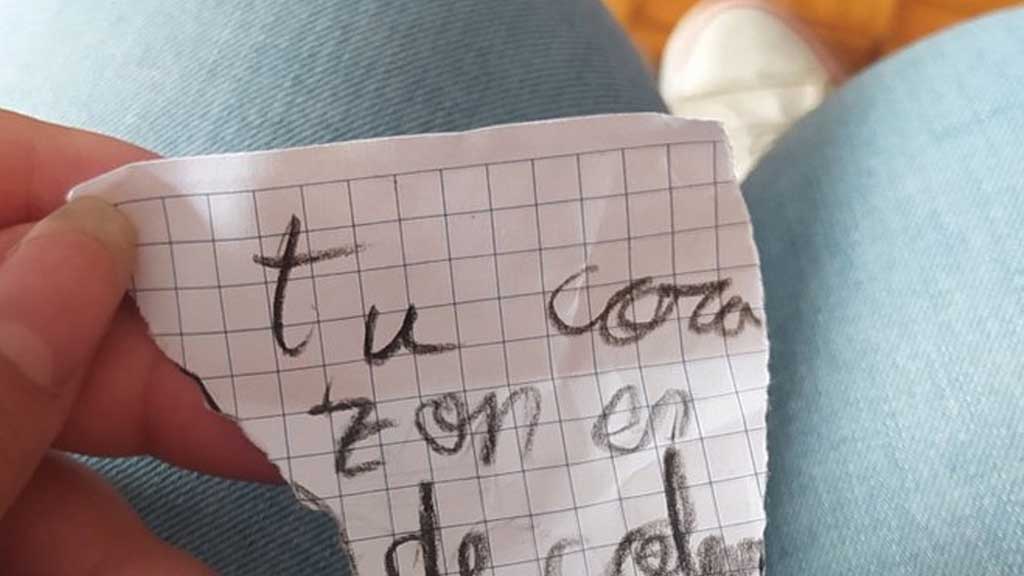 tu cora
zon en
de